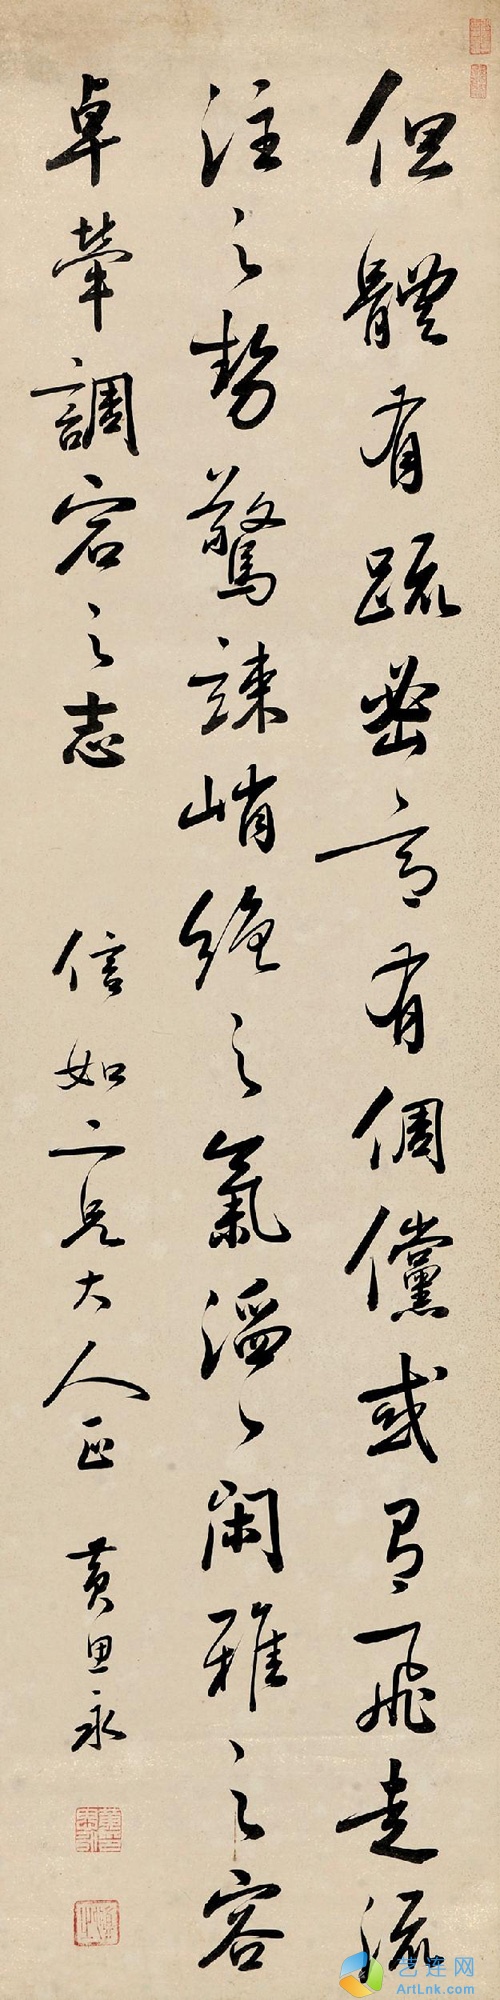 但體有疏密意有倜儻或有飛走流
注之勢驚竦峭絕之氣滔〻閑雅之容
卓犖調宕之志 信如二兄大人正 黃思永
艺连网
ArtLnk.com